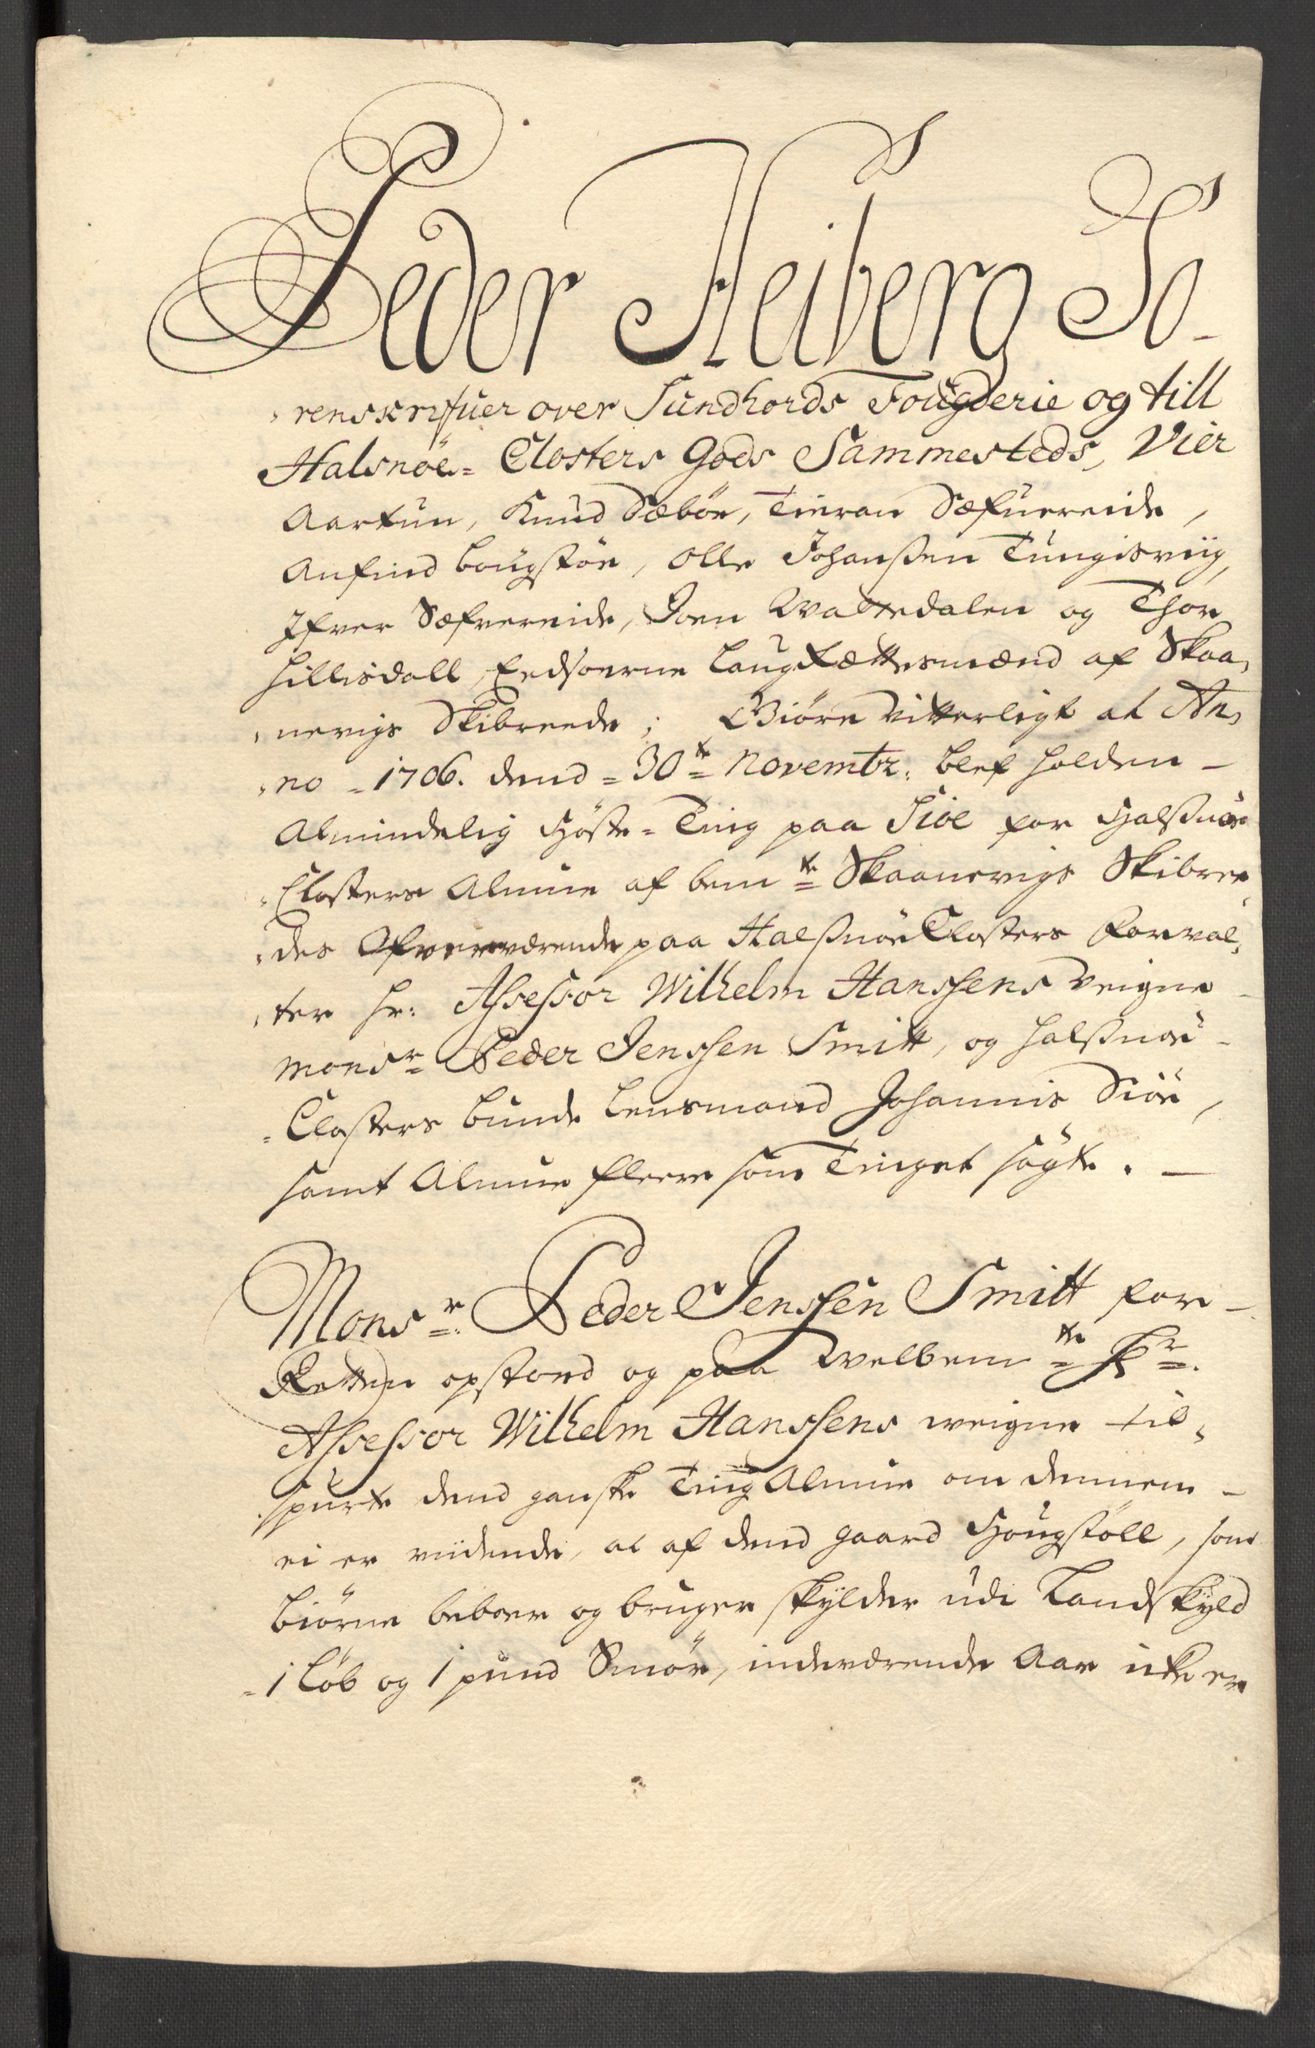 Peder Heiberg So-
renskrifuer over Sundhords Fougderie og till
Halsnöe- Closters Gods Sammesteds, Vier
Aartun, Knud Sæböe, Tieran Sæfuereide,
Anfind Lougstöe, Olle Johanßen Tungisviig,
Ifver Sæfvereide, Joen Wattedalen og Thor
Hillisdall, Eedsoerne Laugrættesmænd af Skaa-
nevigs Skibreede; Giöre Vitterligt at An-
no 1706. dend 30te Novembr. blef holden
Almindelig Höste-Ting paa Siöe for Halßnöe
Closters Almue af bemte Skaanevigs Skibree
des Ofververværende paa Halßnöe Closters Forval-
ter Hr: Assessor Wilhelm Hanssens Veigne
Monsr Peder Jenssen Smitt, og Halßnöe
Closters bunde Lensmand Johannis Siöe,
samt Almue fleere som Tinget sögte.
Monsr: Peder Jenssen Smitt for
Retten opstoed og paa Welbemte Hr.
Assessor Wilhelm Hanssens weigne til-
spurte dend ganske Ting Almue om dennem
ei er vidende, at af dend gaard Hougstöll, som
Biörne beboer og bruger skylder udi Landskyld
1 Löb og 1 pund Smör, indeværende Aar icke er